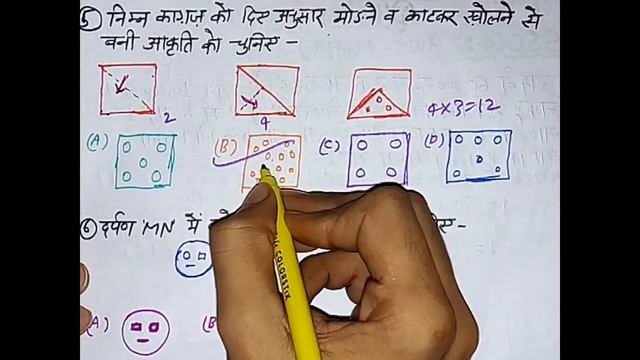 ⑤ निम्न कागज़ को दिए अनुसार मोड़ने व काटकर खोलने से
बनी आकृति को चुनिए -
2
4
4×3=12
(A)
(B)
(C)
(D)
⑥ दर्पण MN में
(A)
(B
COLORSTIX